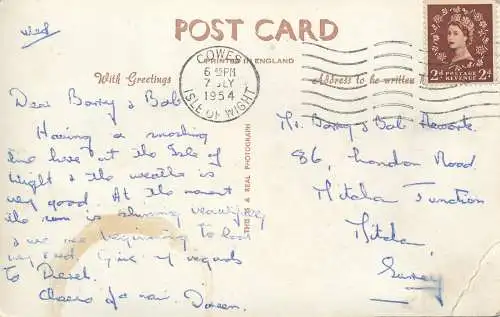 Wed
POST CARD
PRINTED IN ENGLAND
With Greetings
Address to be written
COWES
6 PM
7 JLY
1954
ISLE OF WIGHT
2d POSTAGE REVENUE 2d
THIS IS A REAL PHOTOGRAPH
Dear Barry & Bab
Having a smashing
time here at the Isle of
Wight & the weather is
very good. At the moment
the sun is shining beautifully
& we are beginning to look
very red. Give my regards
to
Cheerio for now. Doreen.
Mr. Barry & Bab
86, London Road,
Mitcham Junction
Mitcham,
Surrey